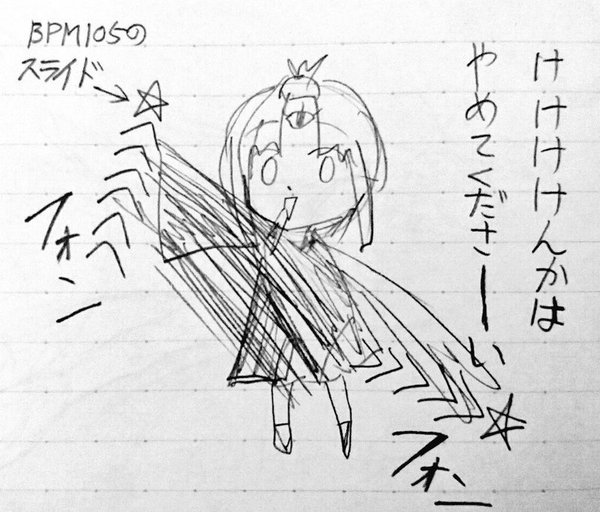 BPM105の
スライド
けけけけんかは
やめてくださーい
フォン
フォン